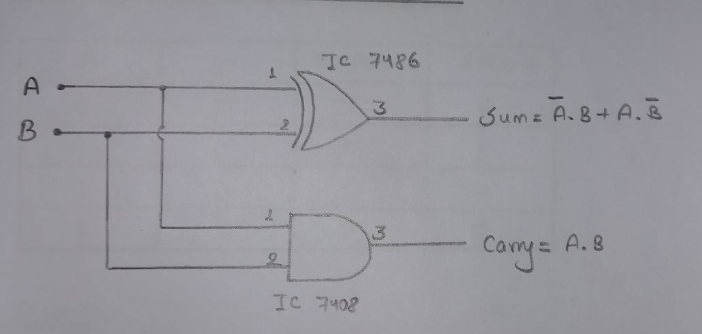 IC 7486
A
1
3
Sum = A̅.B + A.B̅
B
2
1
3
Carry = A.B
2
IC 7408